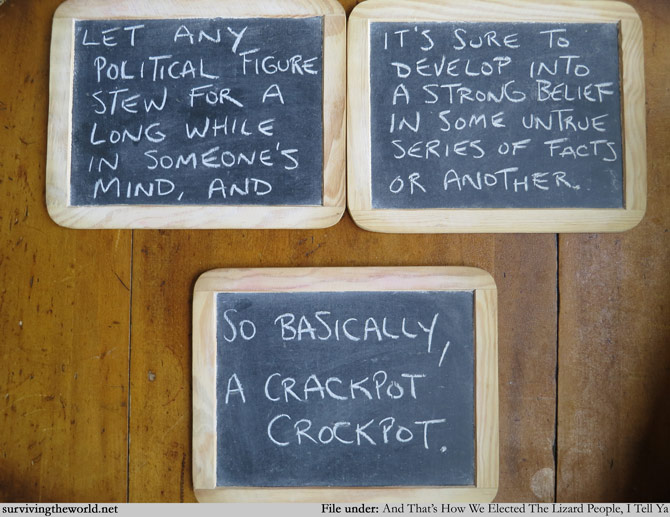 LET ANY
POLITICAL FIGURE
STEW FOR A
LONG WHILE
IN SOMEONE'S
MIND, AND
IT'S SURE TO
DEVELOP INTO
A STRONG BELIEF
IN SOME UNTRUE
SERIES OF FACTS
OR ANOTHER.
SO BASICALLY,
A CRACKPOT
CROCKPOT.
survivingtheworld.net
File under: And That's How We Elected The Lizard People, I Tell Ya